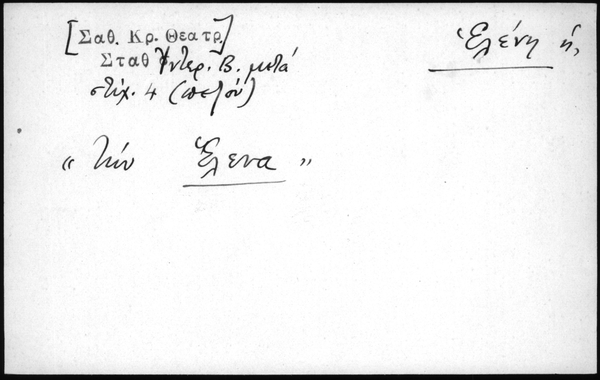 [Σαθ. Κρ. Θεατρ.]
Σταθ Ἰντερ. Β. μετά
στίχ. 4 (πεζοῦ)
Ἑλένη ἡ,
« τὴν Ἕλενα »